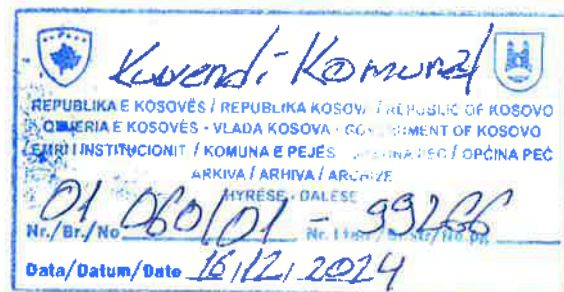 Kuvendi Komunal
REPUBLIKA E KOSOVËS / REPUBLIKA KOSOVA / REPUBLIC OF KOSOVO
QEVERIA E KOSOVËS - VLADA KOSOVA - GOVERNMENT OF KOSOVO
EMRI I INSTITUCIONIT / KOMUNA E PEJËS OPŠTINA PEĆ / OPĆINA PEĆ
ARKIVA / ARHIVA / ARCHIVE
HYRËSE - DALËSE
Nr./Br./No 01 060/01 - 99266
Data/Datum/Date 16/12/2024